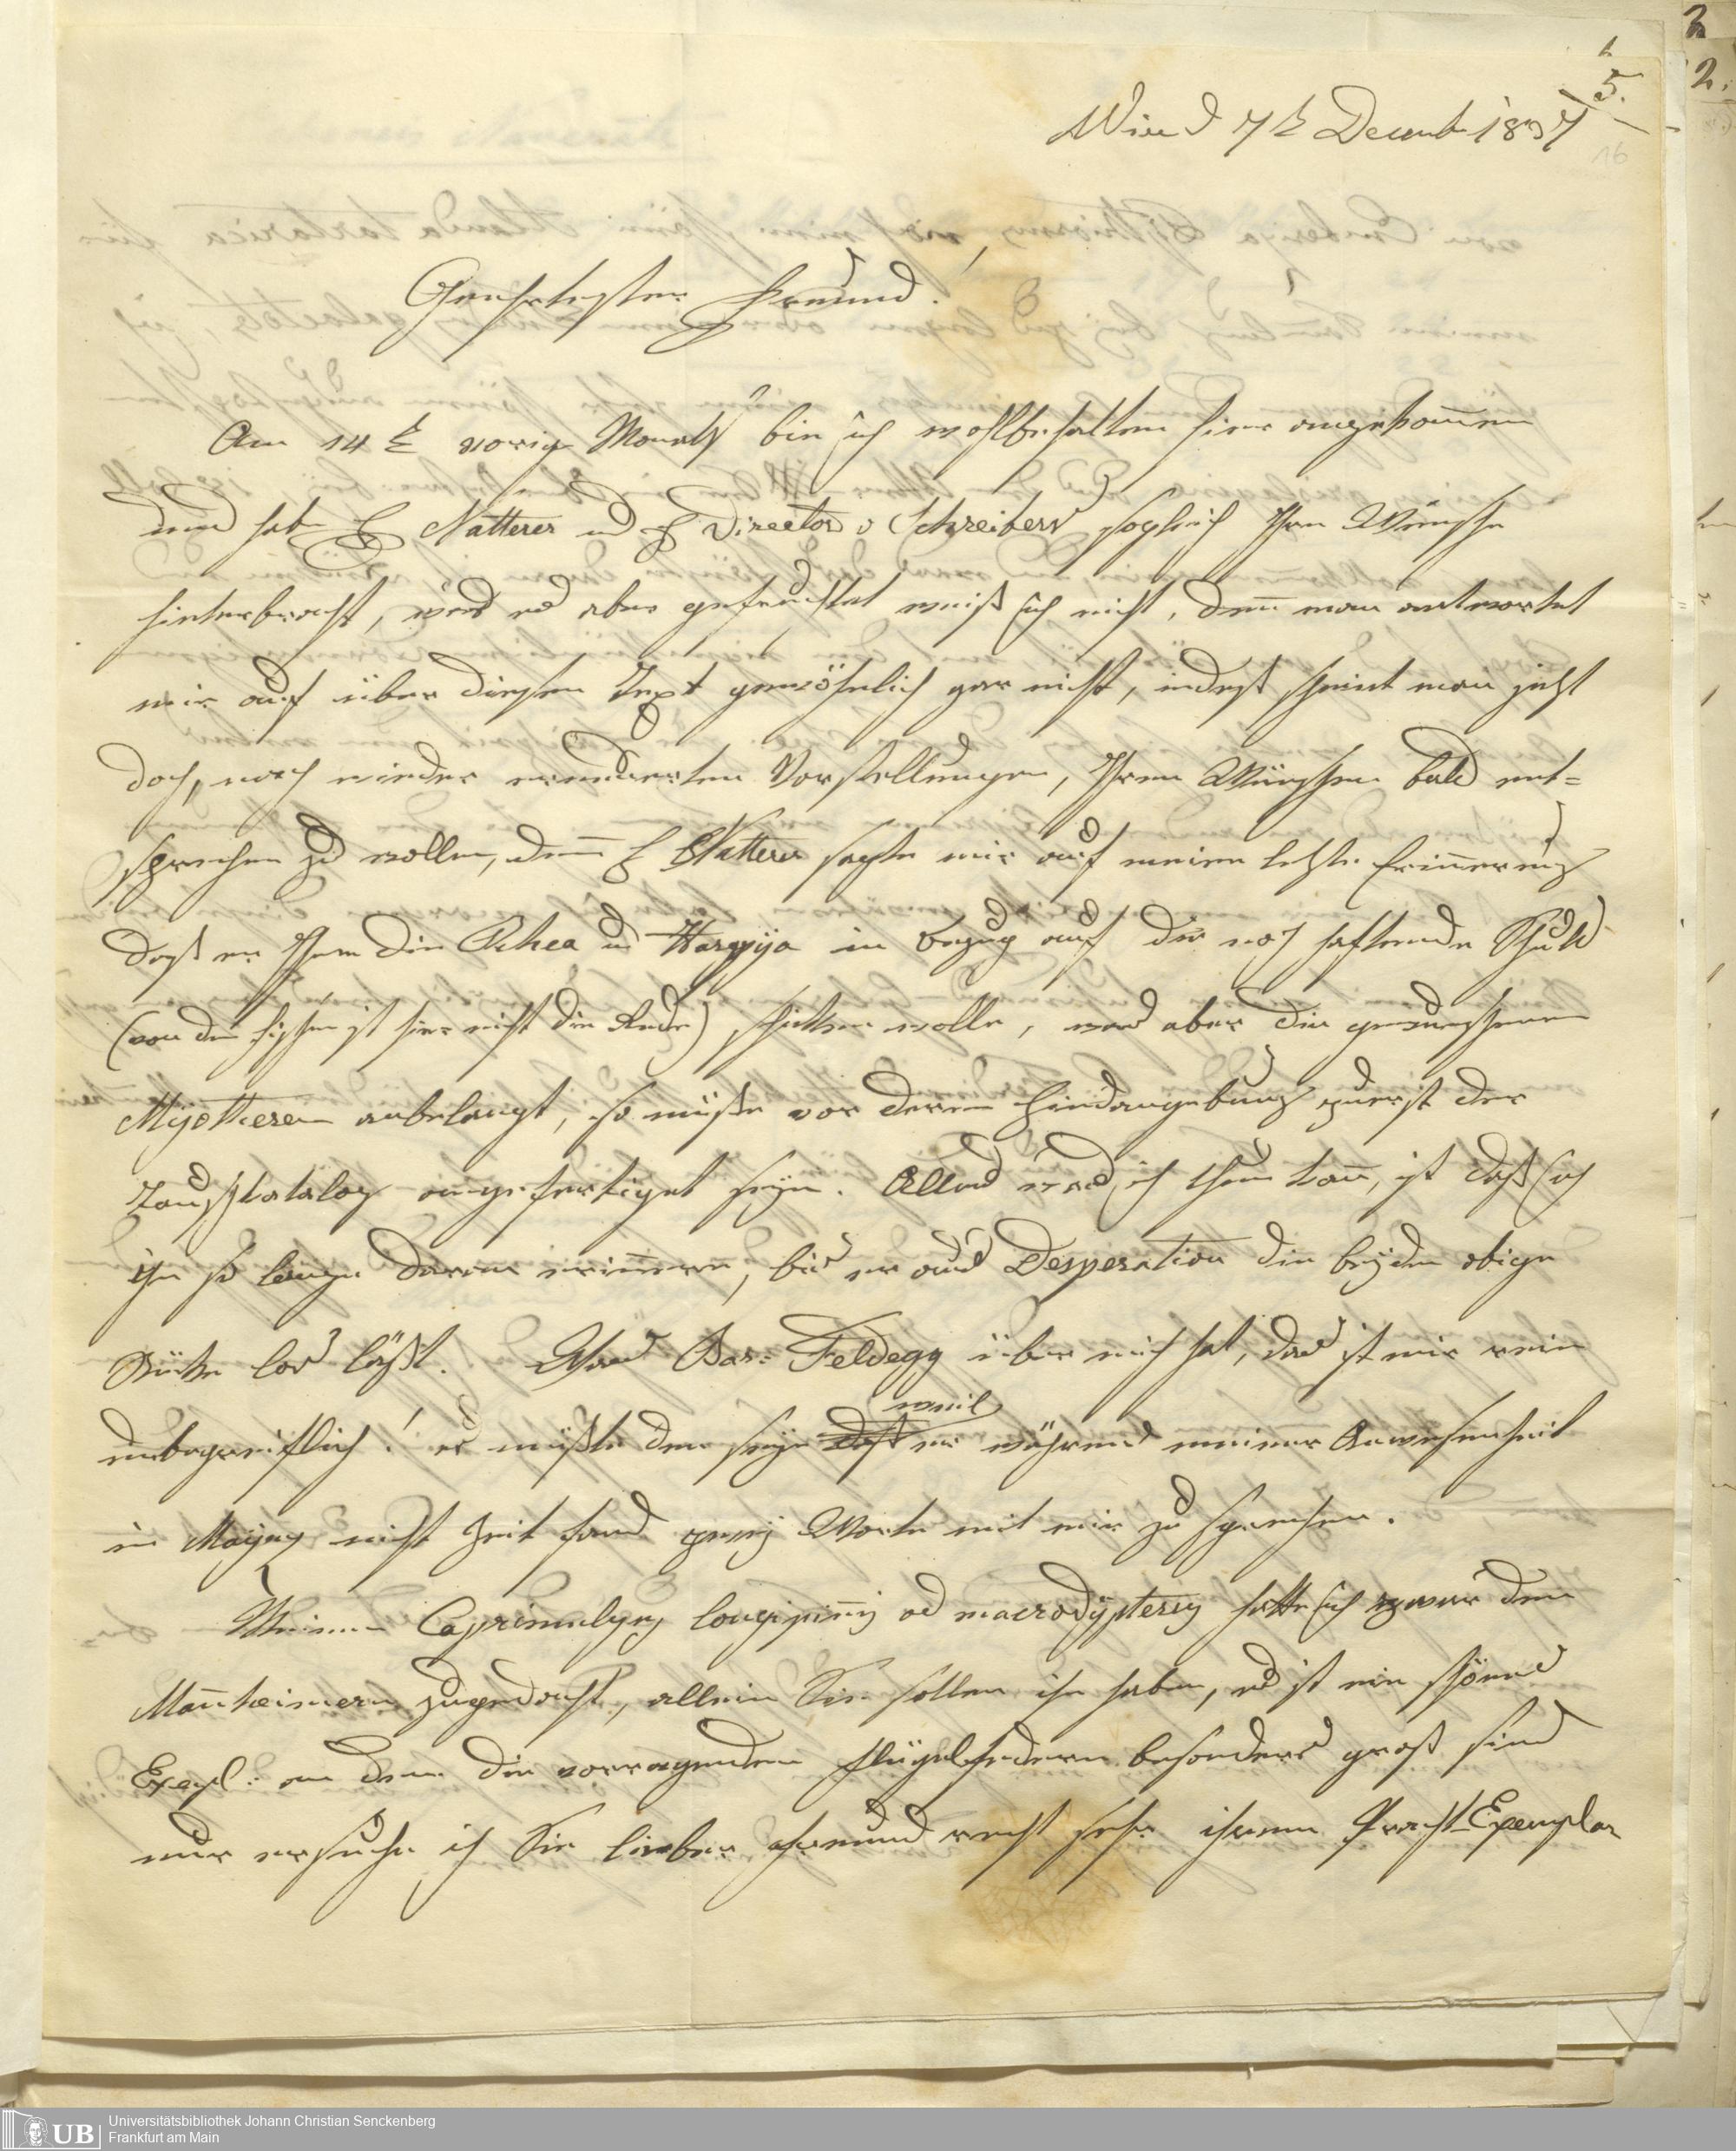 5.
16
Wien d 7t Decemb 1837
Geehrtester Freund!
Am 14t vorig Monats bin ich wohlbehalten hier angekom̄en
und habe H Natterer und H Director v Schreibers sogleich Ihre Wünsche
hinterbracht, was es aber gefruchtet weiß ich nicht, den̄ man antwortet
mir auf über diesen Text gewöhnlich gar nicht, indeß scheint man jetzt
doch, nach wieder erneuerten Vorstellungen, Ihren Wünschen bald ent=
sprechen zu wollen, den̄ H Natterer sagte mir auf meine letzte Erin̄erung
daß er Ihnen die Rhea und Harpyja in Bezug auf die noch haftende Schuld
(von den Fischen ist hier nicht die Rede) schicken wolle, was aber die gewünschenen
Myotheren anbelangt, so müße vor deren Hindangebung zuerst der
Tauschkatalog angefertiget seyn. Alles was ich thun kan̄, ist daß ich
ihn so lange daran erin̄ere, bis er aus Desperation die beyden obigen
Stücke los läßt. Was Bar: Feldegg über mich hat, das ist mir rein
unbegreiflich! es müßte den seyn daß weil er während meiner Anwesenheit
in Maynz nicht Zeit fand zwey Worte mit mir zu sprechen.
Meinen Caprimulgus longipin̄is od macrodypterus hatte ich zwar den
Man̄heimern zugedacht, allein Sie sollen ihn haben, es ist ein schönes
Expl: an dem die vorragenden Flügelfedern besonders groß sind
nur ersuche ich Sie lieber Freund recht sehr ihrem Pracht-Exemplar
2
2.
UB
Universitätsbibliothek Johann Christian Senckenberg
Frankfurt am Main